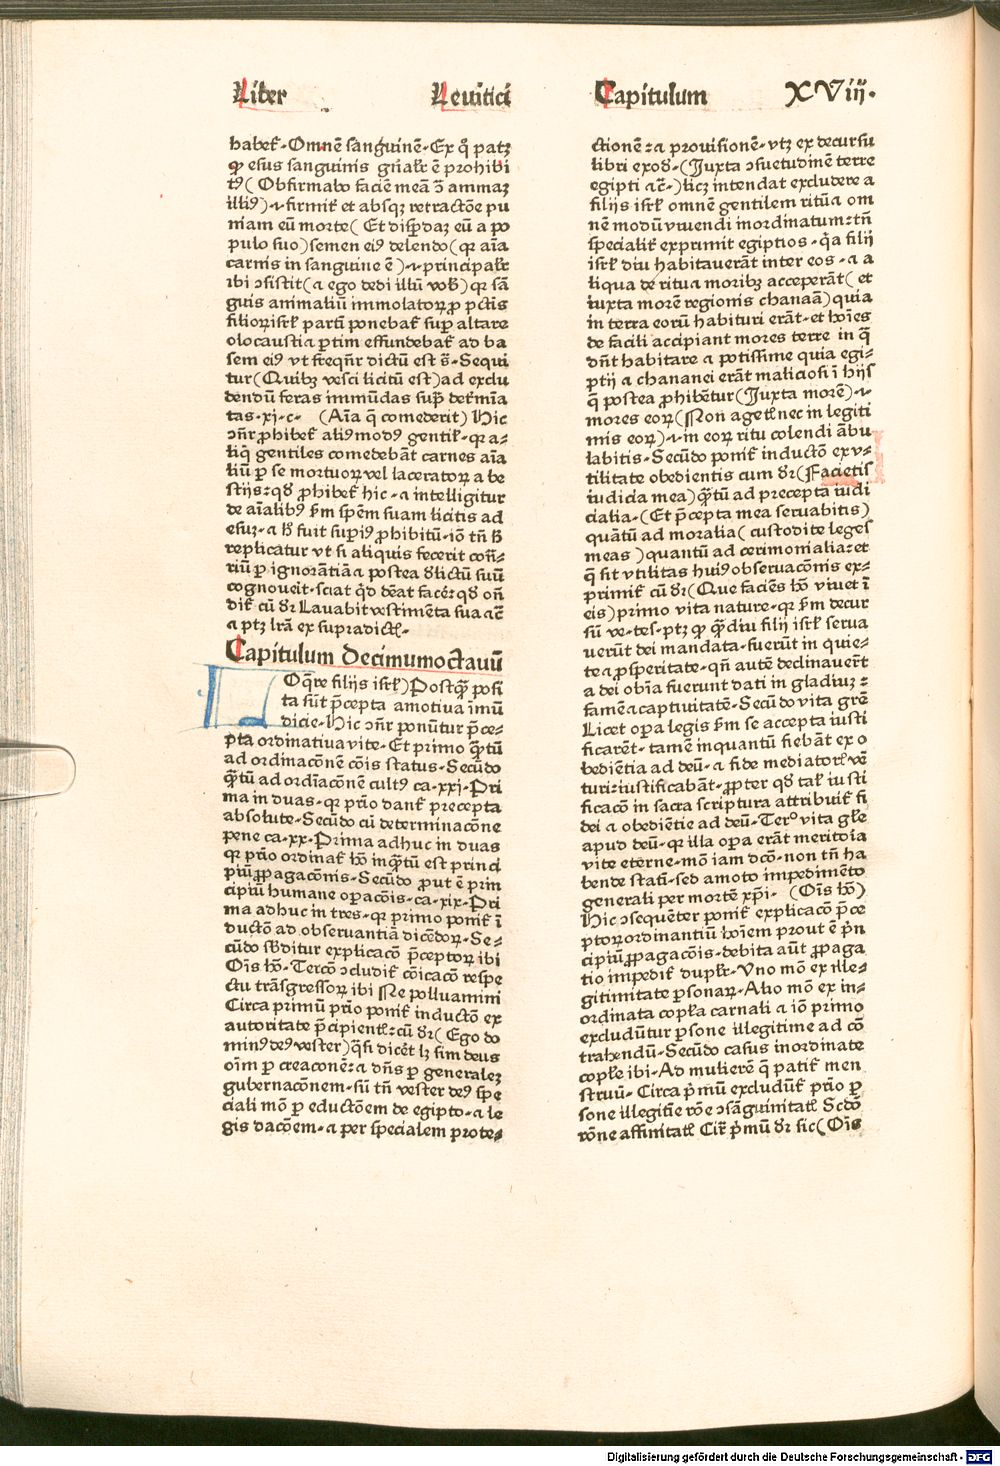 Liber Leuitici Capitulum XViij.
habet̃. Omnẽ sanguinẽ. Ex q̊ patꝫ
ꝙ esus sanguinis gñalit̃ ẽ prohibi
tꝰ( Obfirmabo faciẽ meã ↄ̃ ammaꝫ
illiꝰ).i. firmit̃ et absqꝫ retractõe pu
niam eũ morte( Et disꝑdaꝫ eũ a po
pulo suo) semen eiꝰ delendo( qꝛ aĩa
carnis in sanguine ẽ ).i. principalit̃
ibi ↄsistit( a ego dedi illũ vob̃) qꝛ sã
guis animaliũ immolatoꝝ ꝓ pctĩs
filioꝝ isrł partĩ ponebat̃ suꝑ altare
olocausti a ꝑtim effundebat̃ ad ba
sem eiꝰ vt freqñr dictũ est s̃. Sequi
tur( Quibꝫ vesci licitũ est) ad exclu
dendũ feras immũdas supᷓ det̃mĩa
tas.xj.c. (Aĩa q̃ comederit) Hic
ↄñr ꝓhibet̃ aliꝰ modꝰ gentił. qꝛ a⸗
liq̃ gentiles comedebãt carnes aĩa
liũ ꝑ se mortuoꝝ vel laceratoꝝ a be
stijs: qđ ꝓhibet̃ hic. a intelligitur
de aĩalibꝰ ẜm spẽm suam licitis ad
esuꝫ. a lꝫ fuit suꝑiꝰ ꝓhibitũ. iõ tñ ħ
replicatur vt si aliquis fecerit coñ⸗
riũ ꝑ ignorãtiã a postea đlictũ suũ
cognouerit. sciat qđ deat facẽ: qđ oñ
dit̃ cũ đr Lauabit vestimẽta sua ac̃
a ptꝫ lr̃a ex supradictł.
Capitulum Decimumoctauũ
Oq̃re filijs isrł) Postq̃ꝫ posi
ta sũt p̃cepta amotiua ĩmũ
dicie. Hic ↄñr ponũtur p̃ce⸗
pta ordinatiua vite. Et primo q̃ꝫtũ
ad ordinacõnẽ cõis status. Secũdo
q̃ꝫtũ ad ordĩacõnẽ cultꝰ ca.xxj. Pri
ma in duas. qꝛ pͥo dant̃ precepta
absolute. Secũdo cũ determinacõne
pene ca.xx. Prima adhuc in duas
qꝛ pͥo ordinat̃ hõ inq̃ꝫtũ est princi
piũ ꝓpagacõnis. Secũdo ꝓut ẽ prin
cipiũ humane oꝑacõis. ca.xix. Pri
ma adhuc in tres. qꝛ primo ponit̃ ĩ
ductõ ad obseruantiã dicẽdoꝝ. Se⸗
cũdo sb̃ditur explicacõ p̃ceptoꝝ ibi
Oĩs hõ. Tercõ ↄcludit̃ cõicacõ respe
ctu trãsgressoꝝ ibi Ne polluamini
Circa primũ pͥo ponit̃ inductõ ex
autoritate p̃cipientł: cũ đr( Ego do
minꝰ deꝰ vester) q̃si dicẽt lꝫ sim deus
oĩm ꝑ creaconẽ: a dñs ꝑ generaleꝫ
gubernacõnem. sũ tñ vester deꝰ spe
ciali mõ ꝑ eductõem de egipto. a le
gis dacõem. a per specialem prote⸗
ctionẽ: a prouisionẽ. vtꝫ ex decursu
libri exođ. (Juxta ↄsuetudinẽ terre
egipti ac̃.) licꝫ intendat excludere a
filijs isrł omnẽ gentilem ritũ a om
nẽ modũ viuendi inordinatum: tñ
specialit̃ exprimit egiptios. q̃a filij
isrł diu habitauerãt inter eos. a a
liqua de ritu a moribꝫ acceperãt( et
iuxta morẽ regionis chanaã) quia
in terra eorũ habituri erãt. et hoĩes
de facili accipiant mores terre in q̃
dñt habitare a potissime quia egi⸗
ptij a chananei erãt maliciosi ĩ hijs
q̃ postea ꝓhibẽtur( Juxta morẽ).i.
mores eoꝝ( Non agetł nec in legiti
mis eoꝝ).i. in eoꝝ ritu colendi ãbu
labitis. Secũdo ponit̃ inductõ ex v⸗
tilitate obedientis cum đr( Facietis
iudicia mea) q̃ꝫtũ ad precepta iudi
cialia. (Et p̃cepta mea seruabitis)
quãtũ ad moralia( custodite leges
meas ) quantũ ad cerimonialia: et
q̃ sit vtilitas huiꝰ obseruacõnis ex⸗
primit̃ cũ đr( Que faciẽs hõ viuet ĩ
eis) primo vita nature. qꝛ ẜm decur
sũ ve.tes. ptꝫ ꝙ q̃ꝫdiu filij isrł serua
uerũt dei mandata. fuerũt in quie⸗
te a ꝓsperitate. qñ autẽ declinauerũt
a dei obĩa fuerunt dati in gladiuꝫ:
famẽ a captiuitatẽ. Secũdo vita grẽ
Licet oꝑa legis ẜm se accepta iusti
ficarẽt. tamẽ inquantũ fiebãt ex o
bediẽtia ad deũ. a fide mediatorł vẽ
turi: iustificabãt. ꝓpter qđ tał iusti
ficacõ in sacra scriptura attribuit̃ fi
dei a obediẽtie ad deũ. Terᵒ vita głe
apud deũ. qꝛ illa oꝑa erãt meritoĩa
vite eterne. mõ iam dcõ. non tñ ha
bende statĩ. sed amoto impedimẽto
generali per mortẽ xp̃i. (Oĩs hõ)
Hic ↄsequẽter ponit̃ explicacõ p̃ce
ptoꝝ ordinantiũ hoĩem prout ẽ p̃n
cipiũ ꝓpagacõis. debita aũt ꝓpaga
tio impedit̃ dupłr. Vno mõ ex ille⸗
gitimitate ꝑsonaꝝ. Alio mõ ex in⸗
ordinata copła carnali a iõ primo
excludũtur ꝑsone illegitime ad cõ
trahendũ. Secũdo casus inordinate
copłe ibi. Ad mulierẽ q̃ patit̃ men
struũ. Circa pͥmũ excludũt̃ pͥo ꝑ
sone illegitĩe rõe ↄsãguinitatł Scđo
rõne affinitatł Cir̃ pͥmũ đr sic( Oĩs
Digitalisierung gefördert durch die Deutsche Forschungsgemeinschaft - DFG